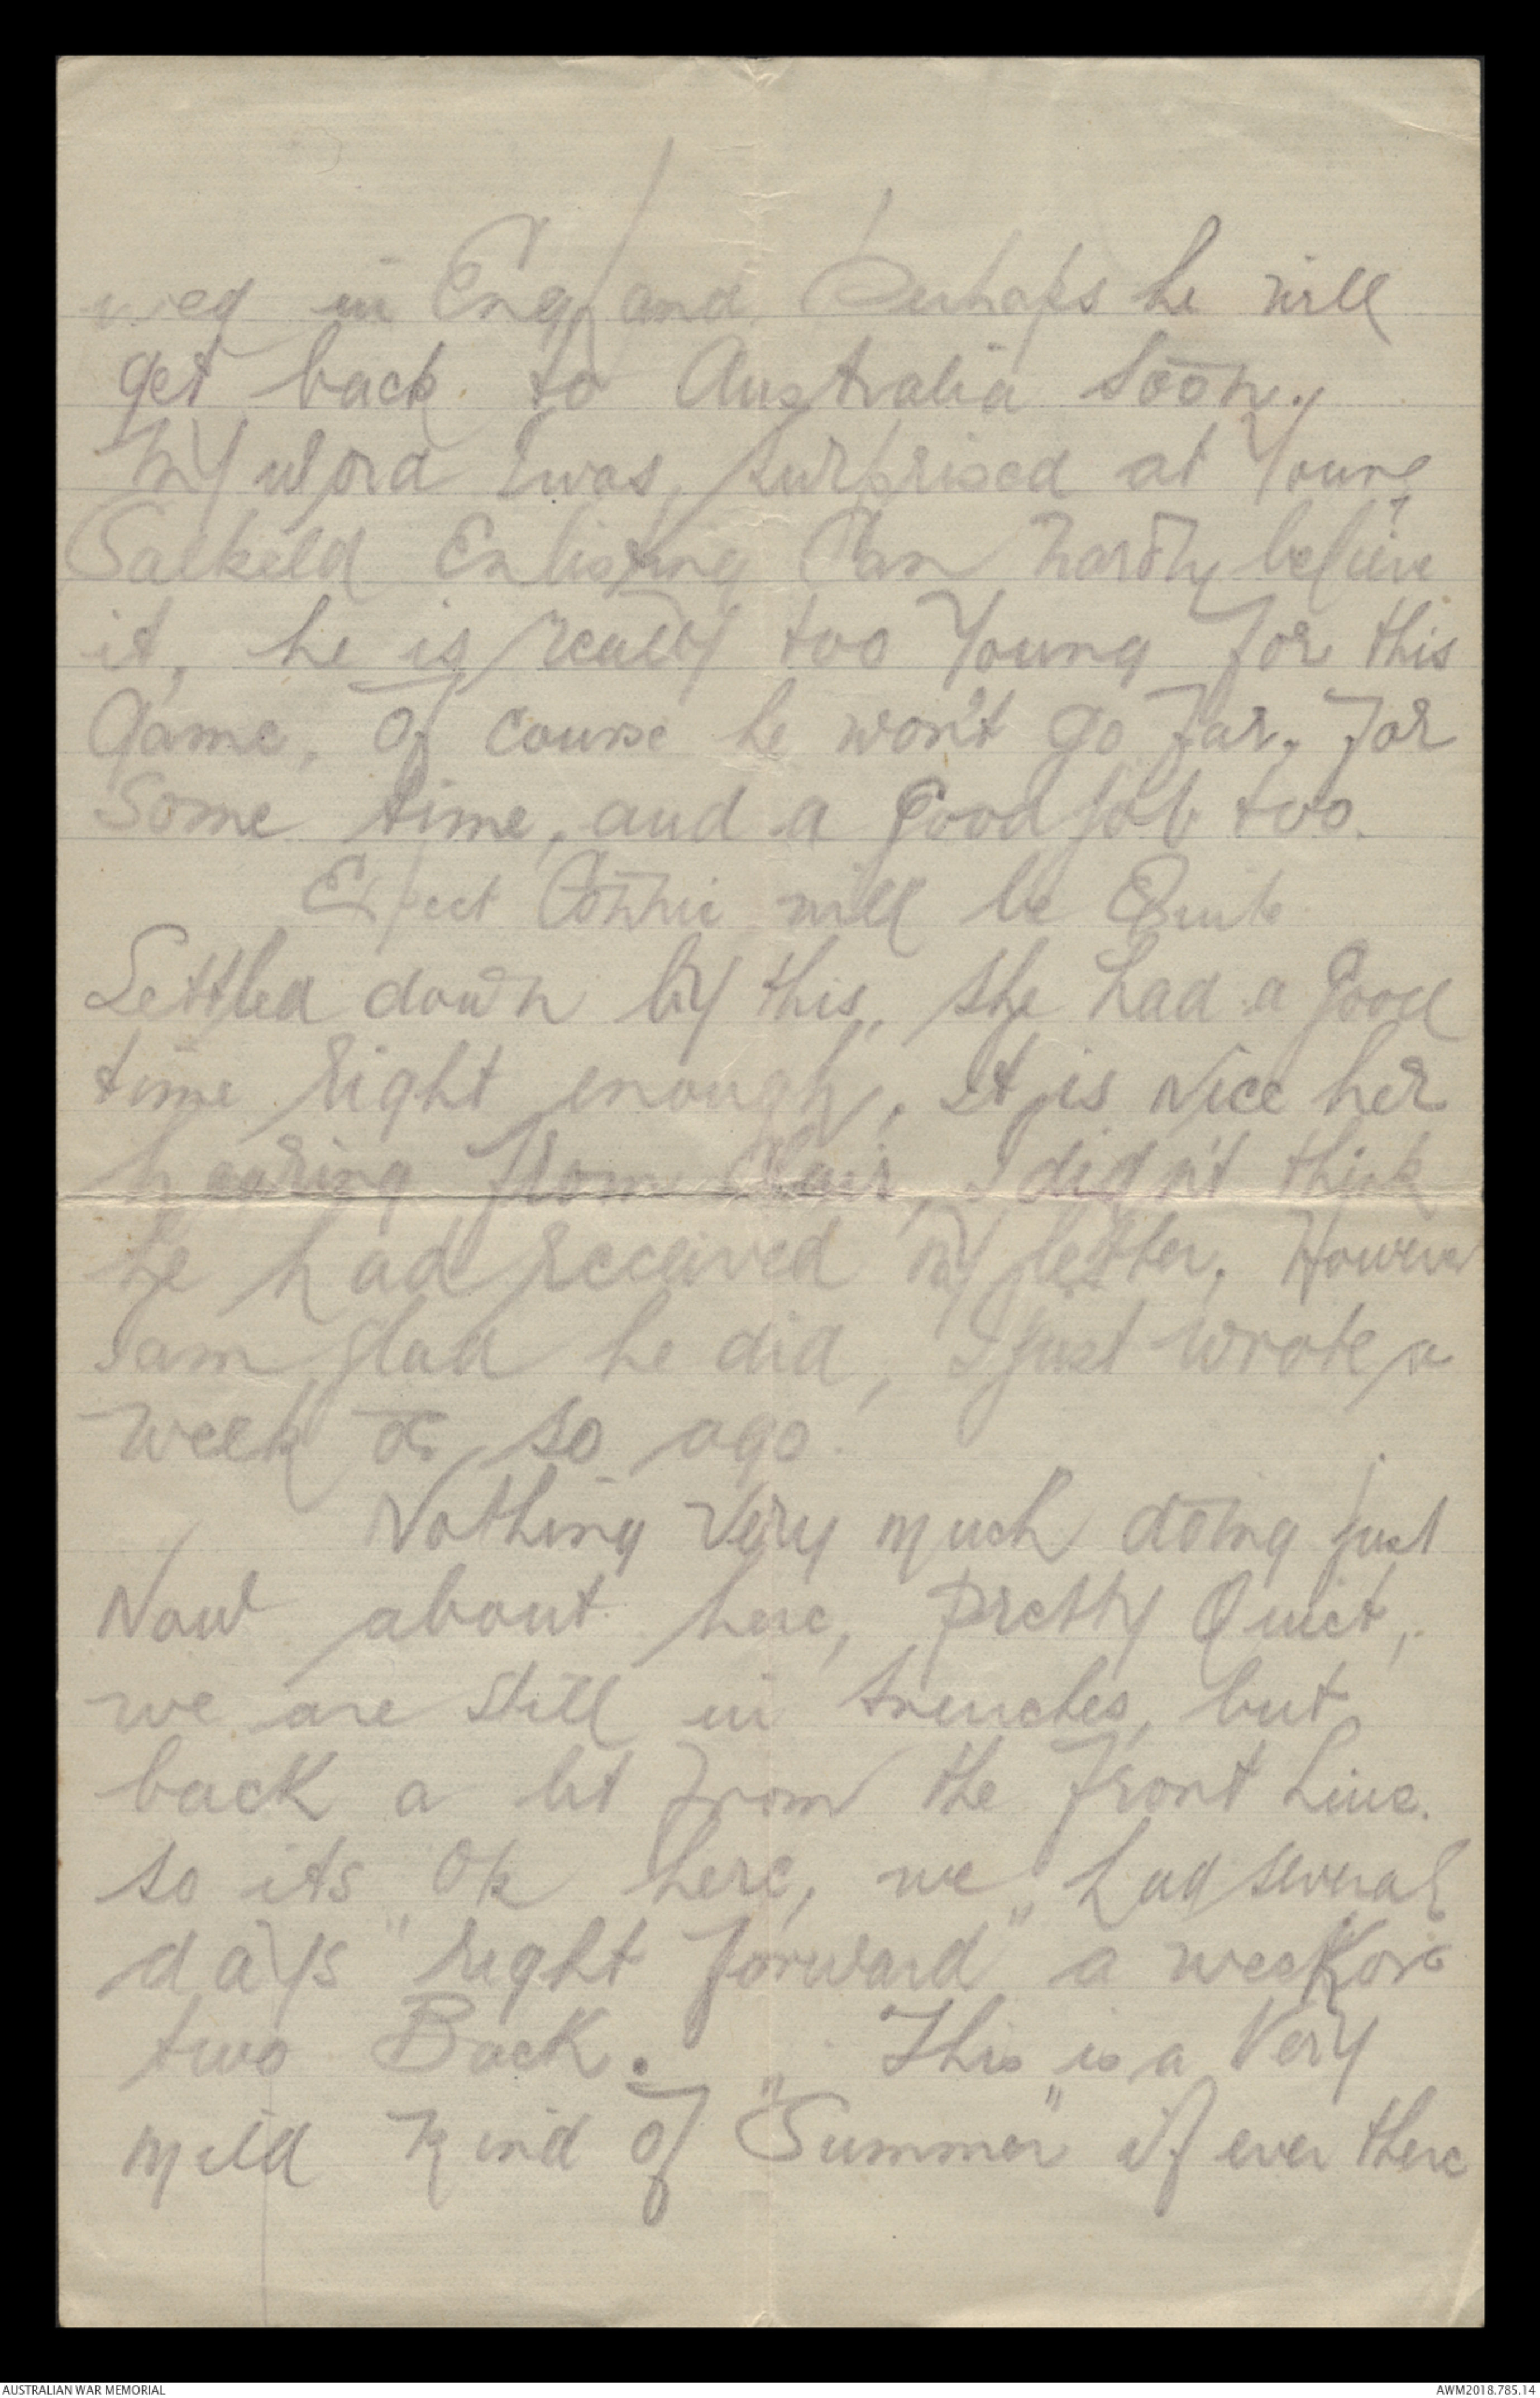 in England Perhaps he will
get back to Australia Soon.
My word I was surprised at Young
Salkeld Enlisting Can hardly believe
it, he is really too Young for this
Game, Of course he won't go far, for
Some time, and a good job too.
Expect Connie will be Quite
Settled down by this, she had a good
time right enough, It is Nice her
hearing from Clair, I didn't think
he had received my letter, However
I am glad he did, I just wrote a
week or so ago.
Nothing Very much doing just
Now about here, pretty Quiet,
we are still in trenches, but
back a bit from the front Line.
so its Ok here, we had several
days "right forward" a week or
two Back. This is a Very
mild kind of "Summer" if ever there
AUSTRALIAN WAR MEMORIAL
AWM2018.785.14